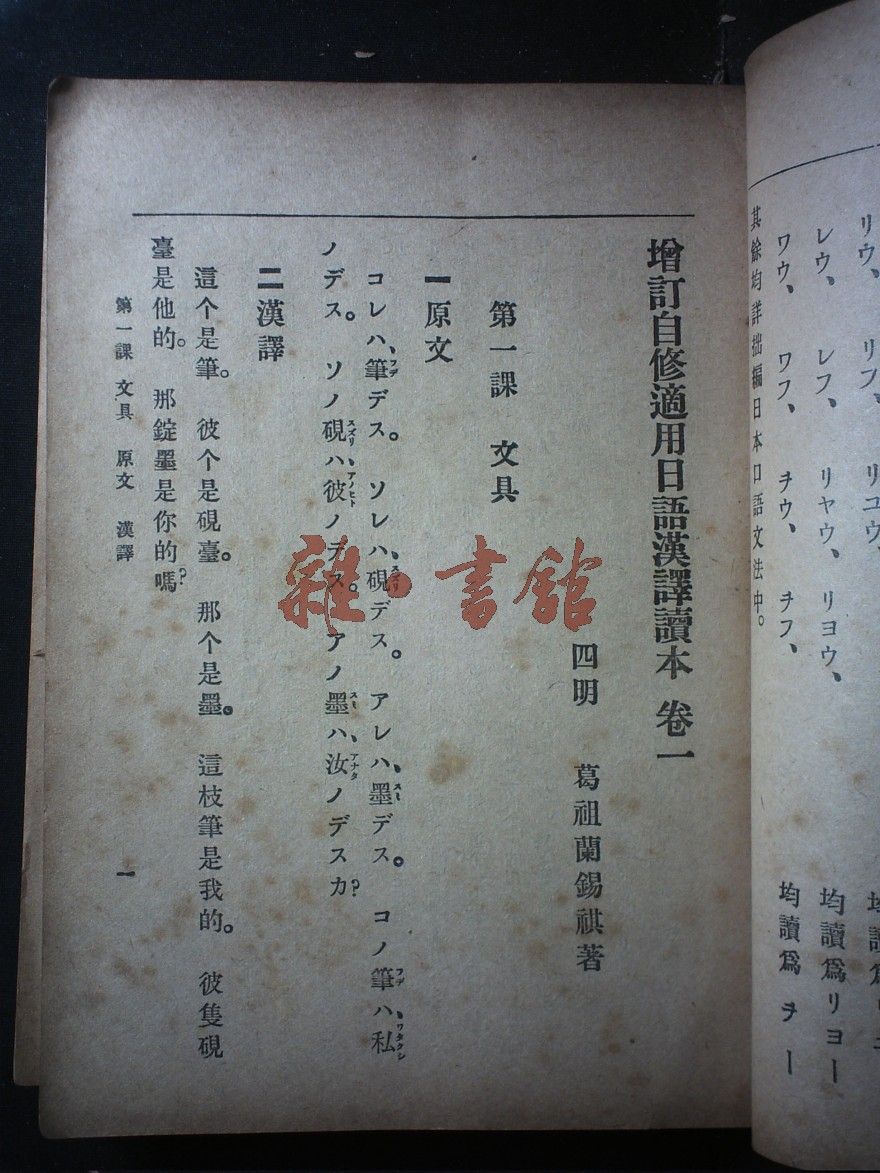 リウ、 リフ、 リユウ、
レウ、 レフ、 リヤウ、 リヨウ、 均讀爲リヨー
ワウ、 ワフ、 ヲウ、 ヲフ、 均讀爲ヲー
其餘均詳拙編日本口語文法中。
增訂自修適用日語漢譯讀本 卷一
四明 葛祖蘭錫祺著
第一課 文具
一原文
コレハ、筆フデデス。 ソレハ、硯スズリデス。 アレハ、墨スミデス。 コノ筆フデハ、私ワタクシ
ノデス。 ソノ硯スズリハ、彼アノヒトノデス。 アノ墨スミハ、汝アナタノデスカ?
二漢譯
這个是筆。 彼个是硯臺。 那个是墨。 這枝筆是我的。 彼隻硯
臺是他的。 那錠墨是你的嗎?
第一課 文具 原文 漢譯 一
雜·書館